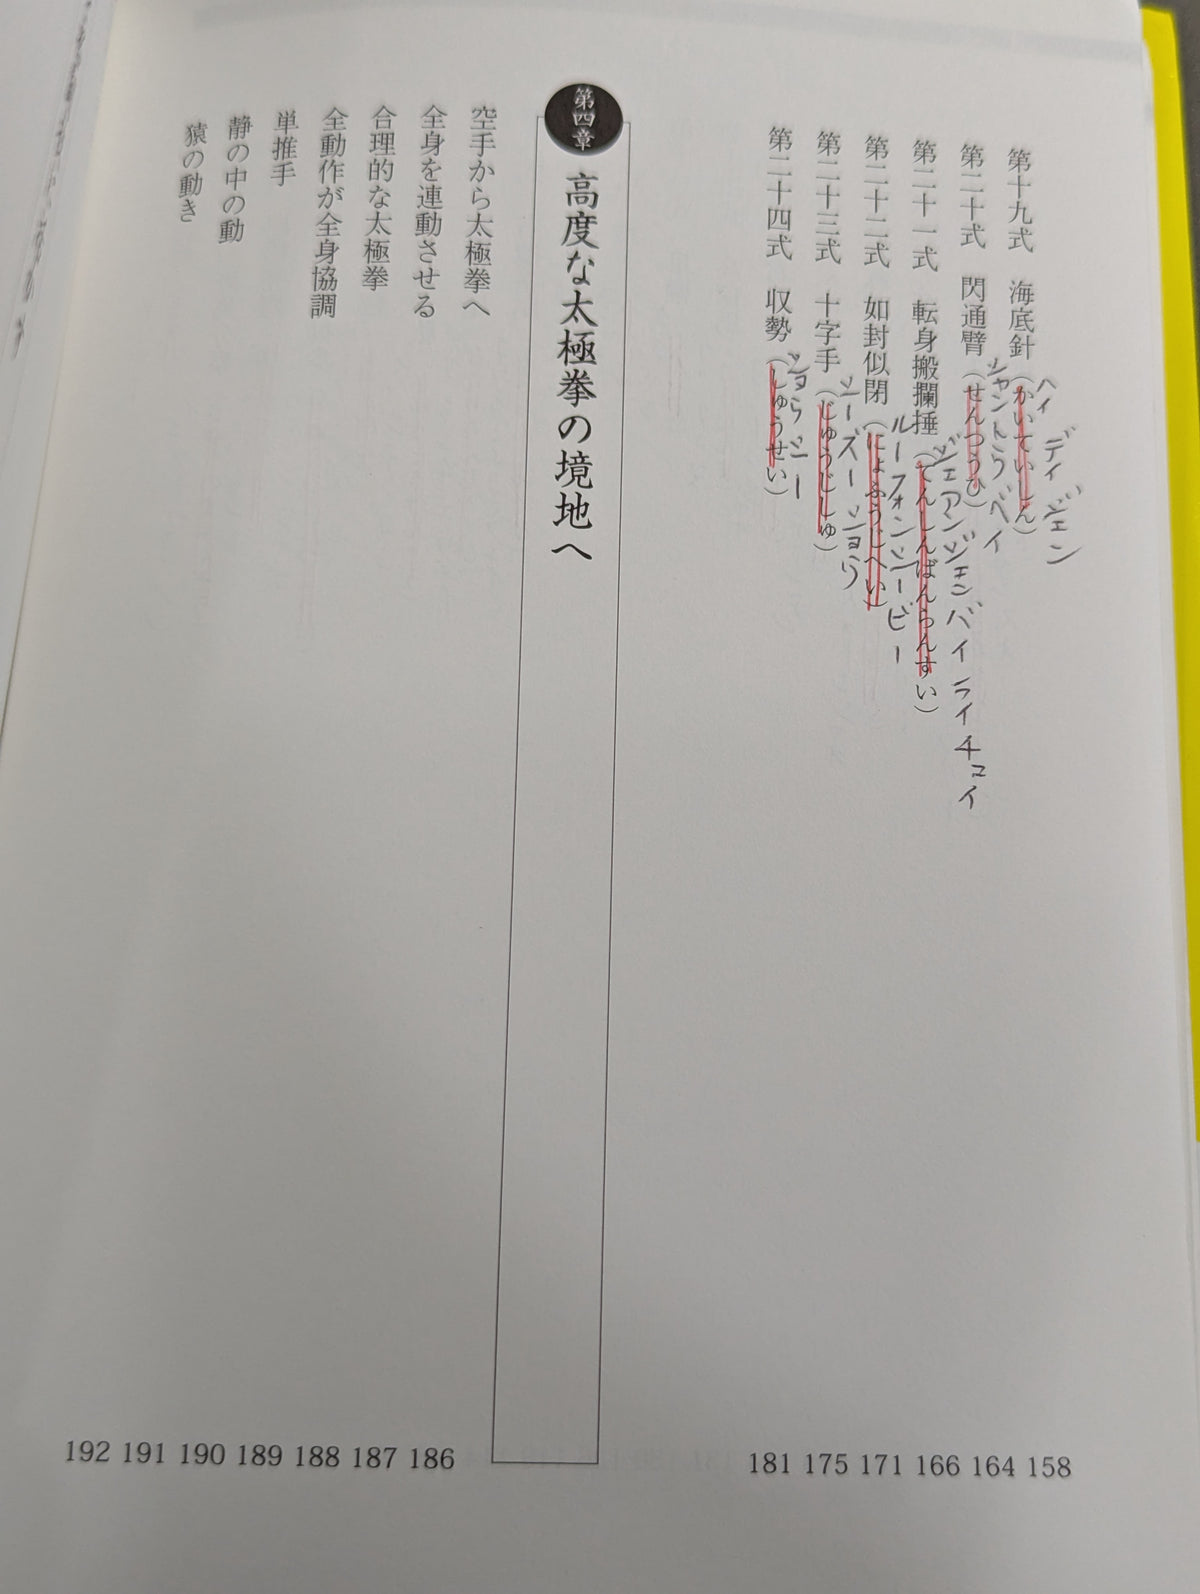 第十九式 海底針（かいていしん） 158
ヘイ ディ ジェン
第二十式 閃通臂（せんつうひ） 164
シャントウ ベイ
第二十一式 転身搬攔捶（てんしんばんらんすい） 166
ジュアンジェンバイライチュイ
第二十二式 如封似閉（にょふうじへい） 171
ルーフォンシービー
第二十三式 十字手（じゅうじしゅ） 175
シーズーショウ
第二十四式 収勢（しゅうせい） 181
ショウシー
第四章
高度な太極拳の境地へ
空手から太極拳へ 186
全身を連動させる 187
合理的な太極拳 188
全動作が全身協調 189
単推手 190
静の中の動 191
猿の動き 192